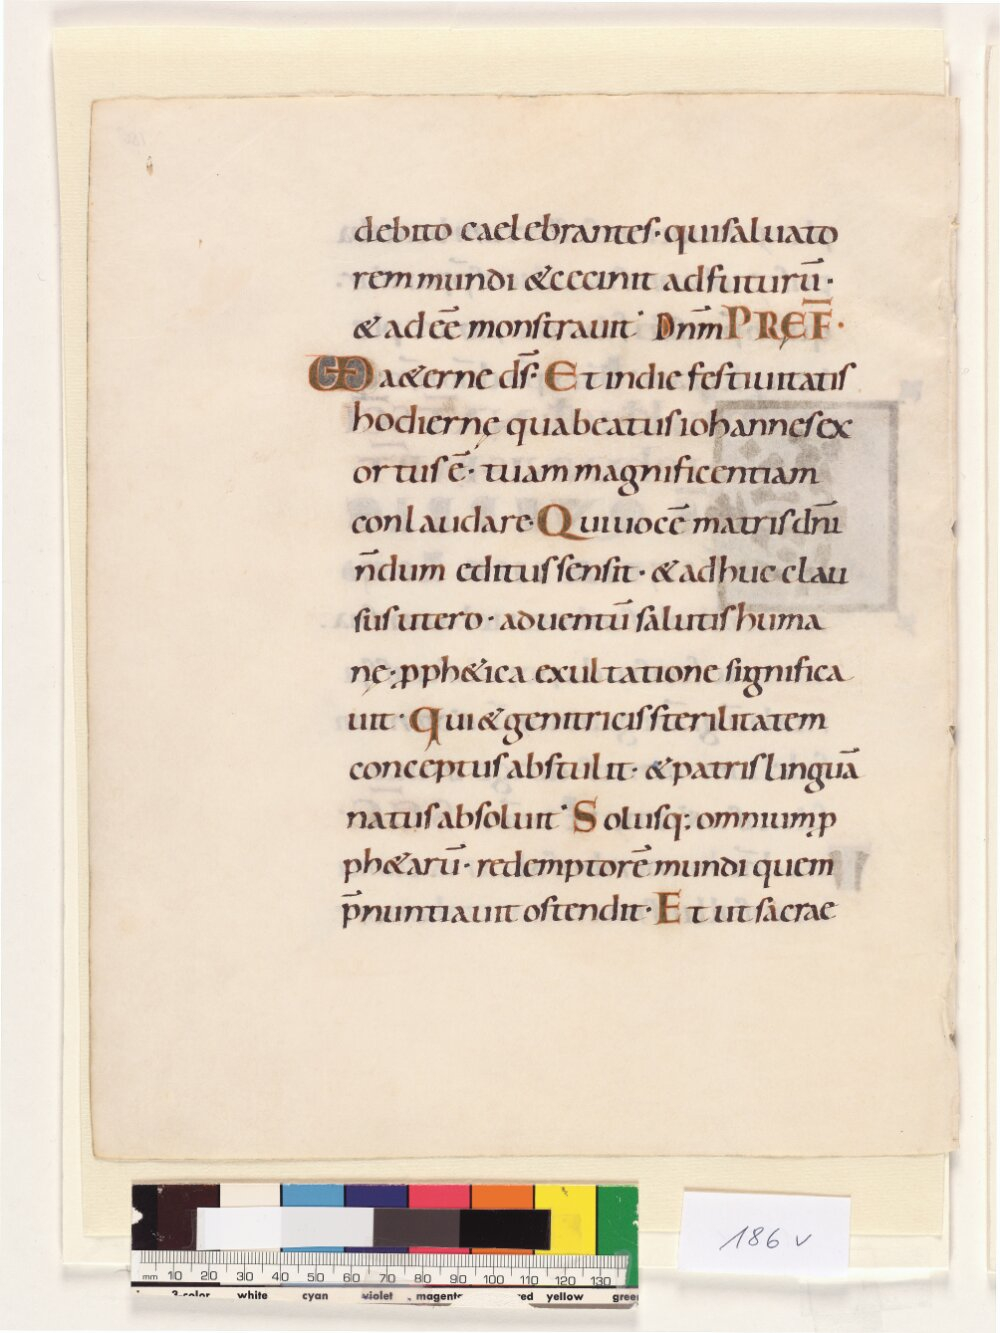 debito caelebrantes· qui saluato
rem mundi & cecinit ad futurū·
& adeē monstrauit· Dnm̄ PREF̄·
VD aeterne ds̄· Et in die festiuitatis
hodierne qua beatus iohannes ex
ortus ē· tuam magnificentiam
conlaudare· Qui uocē matris dn̄i
n̄dum editus sensit· & adhuc clau
sus utero· aduentū salutis huma
nę· pph&ica exultatione significa
uit· Qui & genitricis sterilitatem
conceptus abstulit· & patris linguā
natus absoluit· Solusq; omnium p
ph&arū· redemptorē mundi quem
p̄nuntiauit ostendit· Et ut sacrae
186 v
mm 10 20 30 40 50 60 70 80 90 100 110 120 130
3-color white cyan violet magenta red yellow green